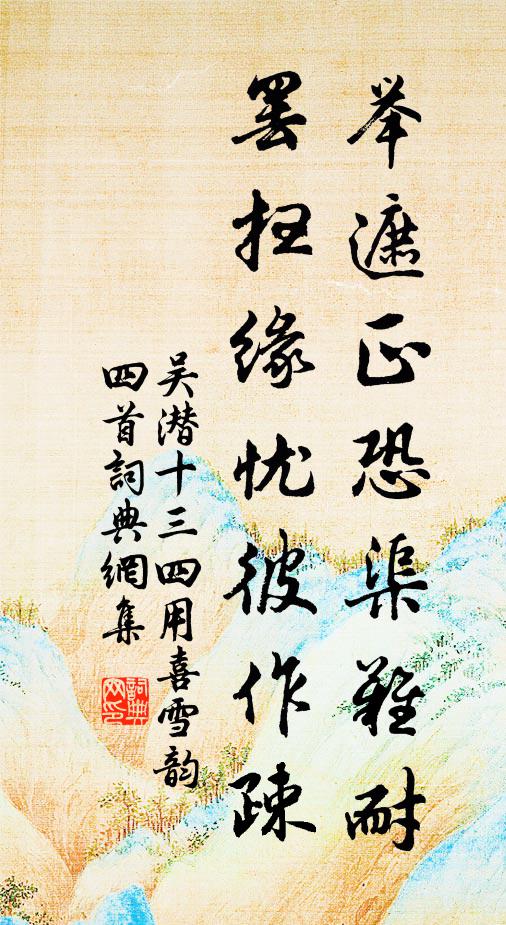 举遮正恐渠难耐
罢扫缘忧彼作疎
吴潜十三四用喜雪韵
四首詞典網集
詞典
网印